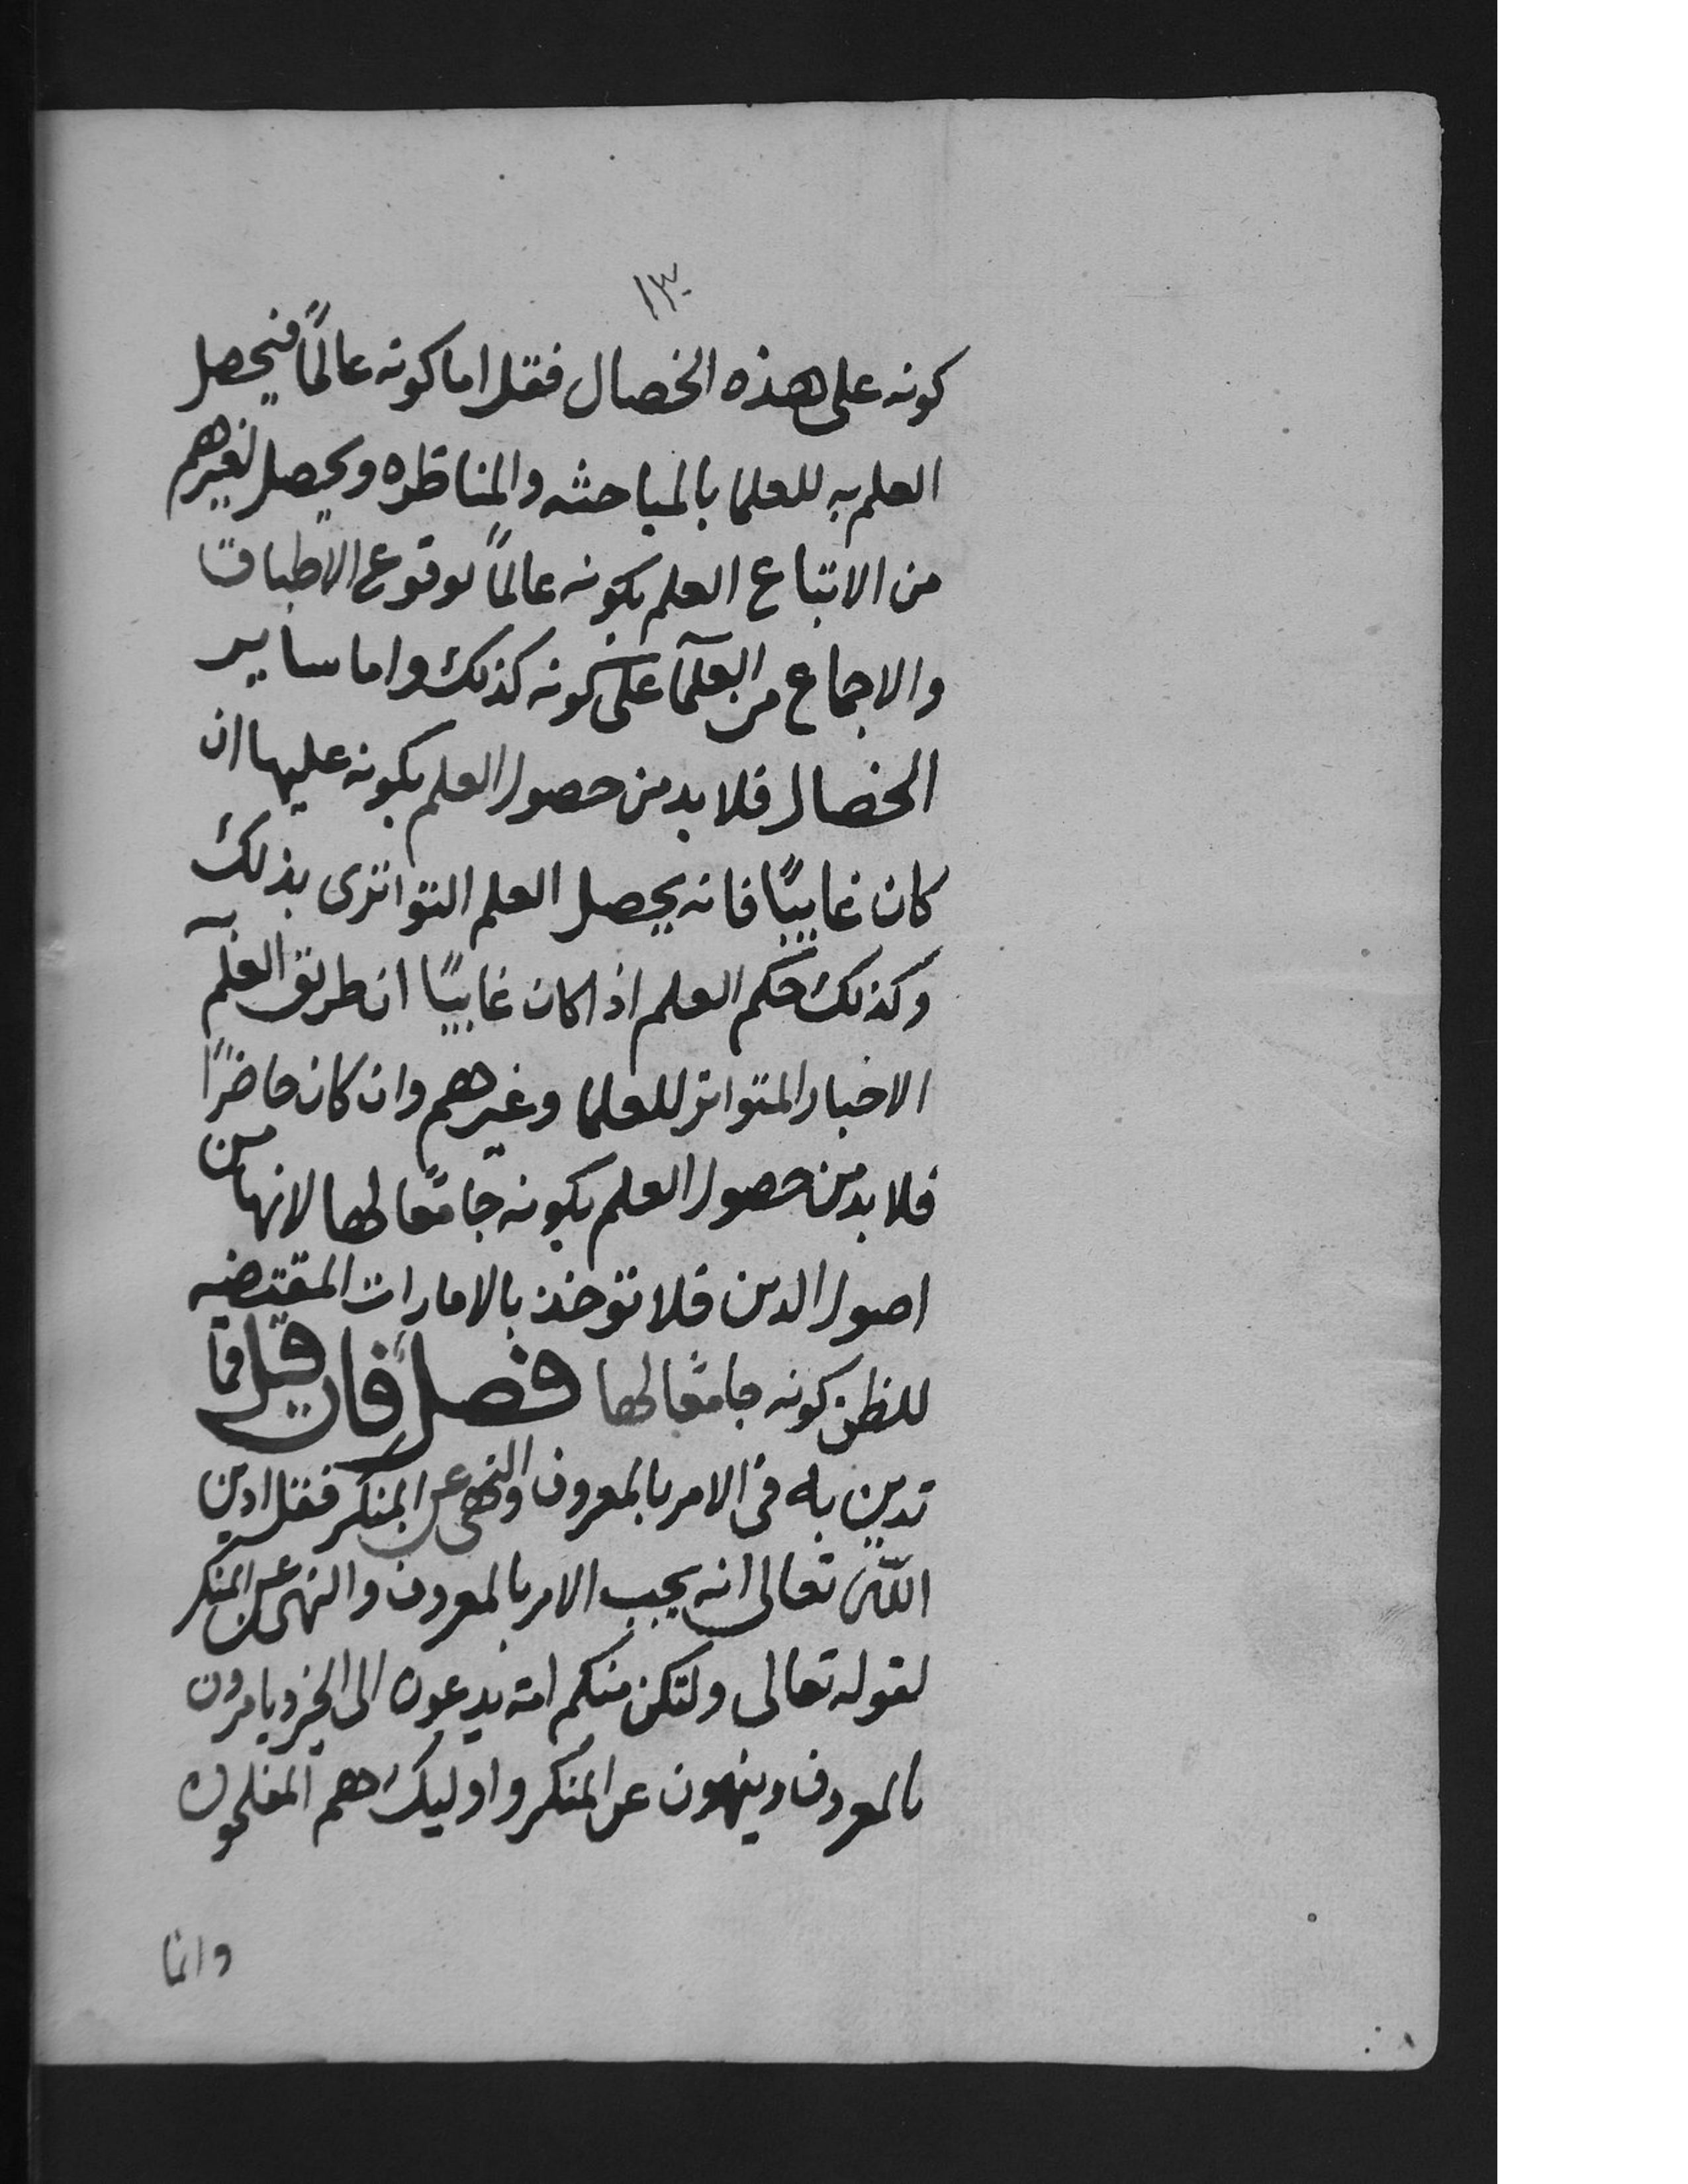 ١٣
كونه على هذه الخصال فقل اما كونه عالمًا فيحصل
العلم به للعلما بالمباحثه والمناظره ويحصل لغيرهم
من الاتباع العلم بكونه عالمًا لوقوع الاطباق
والاجماع من العلمآ على كونه كذلك واما ساير
الخصال فلا بد من حصول العلم بكونه عليها ان
كان غايبًا فانه يحصل العلم التواتري بذلك
وكذلك حكم العلم اذا كان غايبًا ان طريق العلم به
الاخبار المتواتر للعلما وغيرهم وان كان حاضرًا
فلا بد من حصول العلم بكونه جامعًا لها لانها من
اصول الدين فلا توخذ بالامارات المقتضيه
للظن كونه جامعًا لها فصل فان قيل فما
تدين به في الامر بالمعروف والنهي عن المنكر فقل ادين
الله تعالى انه يجب الامر بالمعروف والنهي عن المنكر
لقوله تعالى ولتكن منكم امة يدعون الى الخير ويامرون
بالمعروف وينهون عن المنكر واوليك هم المفلحون
وانما